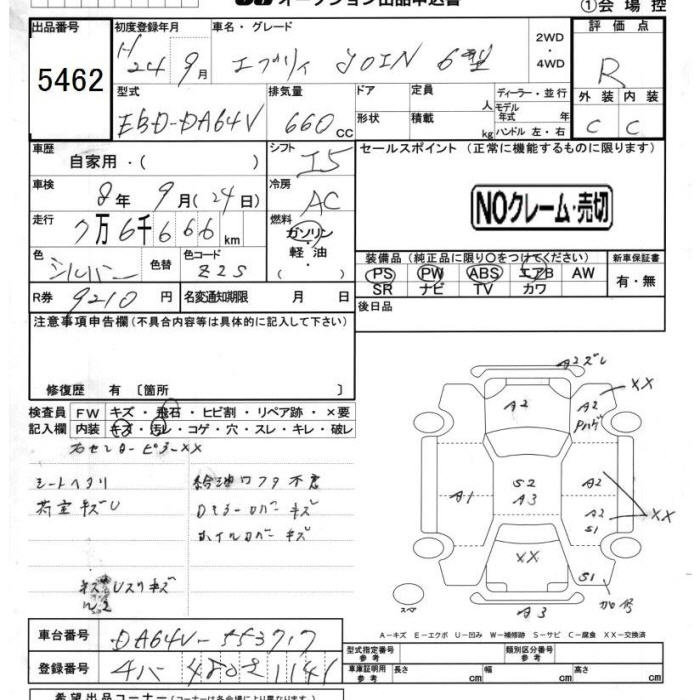 オークション出品申込書
①会場控
出品番号
初度登録年月
車名・グレード
評価点
5462
H24年9月
エブリィ JOIN 6型
2WD
・
4WD
R
型式
排気量
ドア
定員
人
ディーラー・並行
モデル年式 年
外装
内装
EBD-DA64V
660cc
形状
積載
kg
ハンドル 左・右
C
C
車歴
自家用・( )
シフト
I5
セールスポイント (正常に機能するものに限ります)
車検
8年9月(24日)
冷房
AC
NOクレーム・売切
走行
7万6千666km
燃料
ガソリン
・
軽油
( )
色
シルバー
色替
色コード
Z2S
装備品 (純正品に限り○をつけてください)
新車保証書
PS PW ABS エアB AW
有・無
SR ナビ TV カワ
R券
9210円
名変通知期限 月 日
後日品
注意事項申告欄(不具合内容等は具体的に記入して下さい)
修復歴 有 〔箇所 〕
検査員
FW
キズ・飛石・ヒビ割・リペア跡・×要
記入欄
内装
キズ・汚レ・コゲ・穴・スレ・キレ・破レ
右センターピラーXX
シートヘタリ
給油口フタ不良
荷室キズU
Dミラーカバーキズ
ホイルカバーキズ
キズUスリキズ
W2
A2ズレ
XX
A2
A2
Pハゲ
A1
S2
A3
A2
A2
S1
XX
XX
S1
スペア
A3
A-キズ E-エクボ U-凹み W-補修跡 S-サビ C-腐食 XX-交換済
車台番号
DA64V-553717
型式指定番号
参考
類別区分番号
参考
登録番号
4802
1141
車庫証明用
参考
長さ
cm
幅
cm
高さ
cm
希望出品コーナー(コーナーは各会場により異なります)